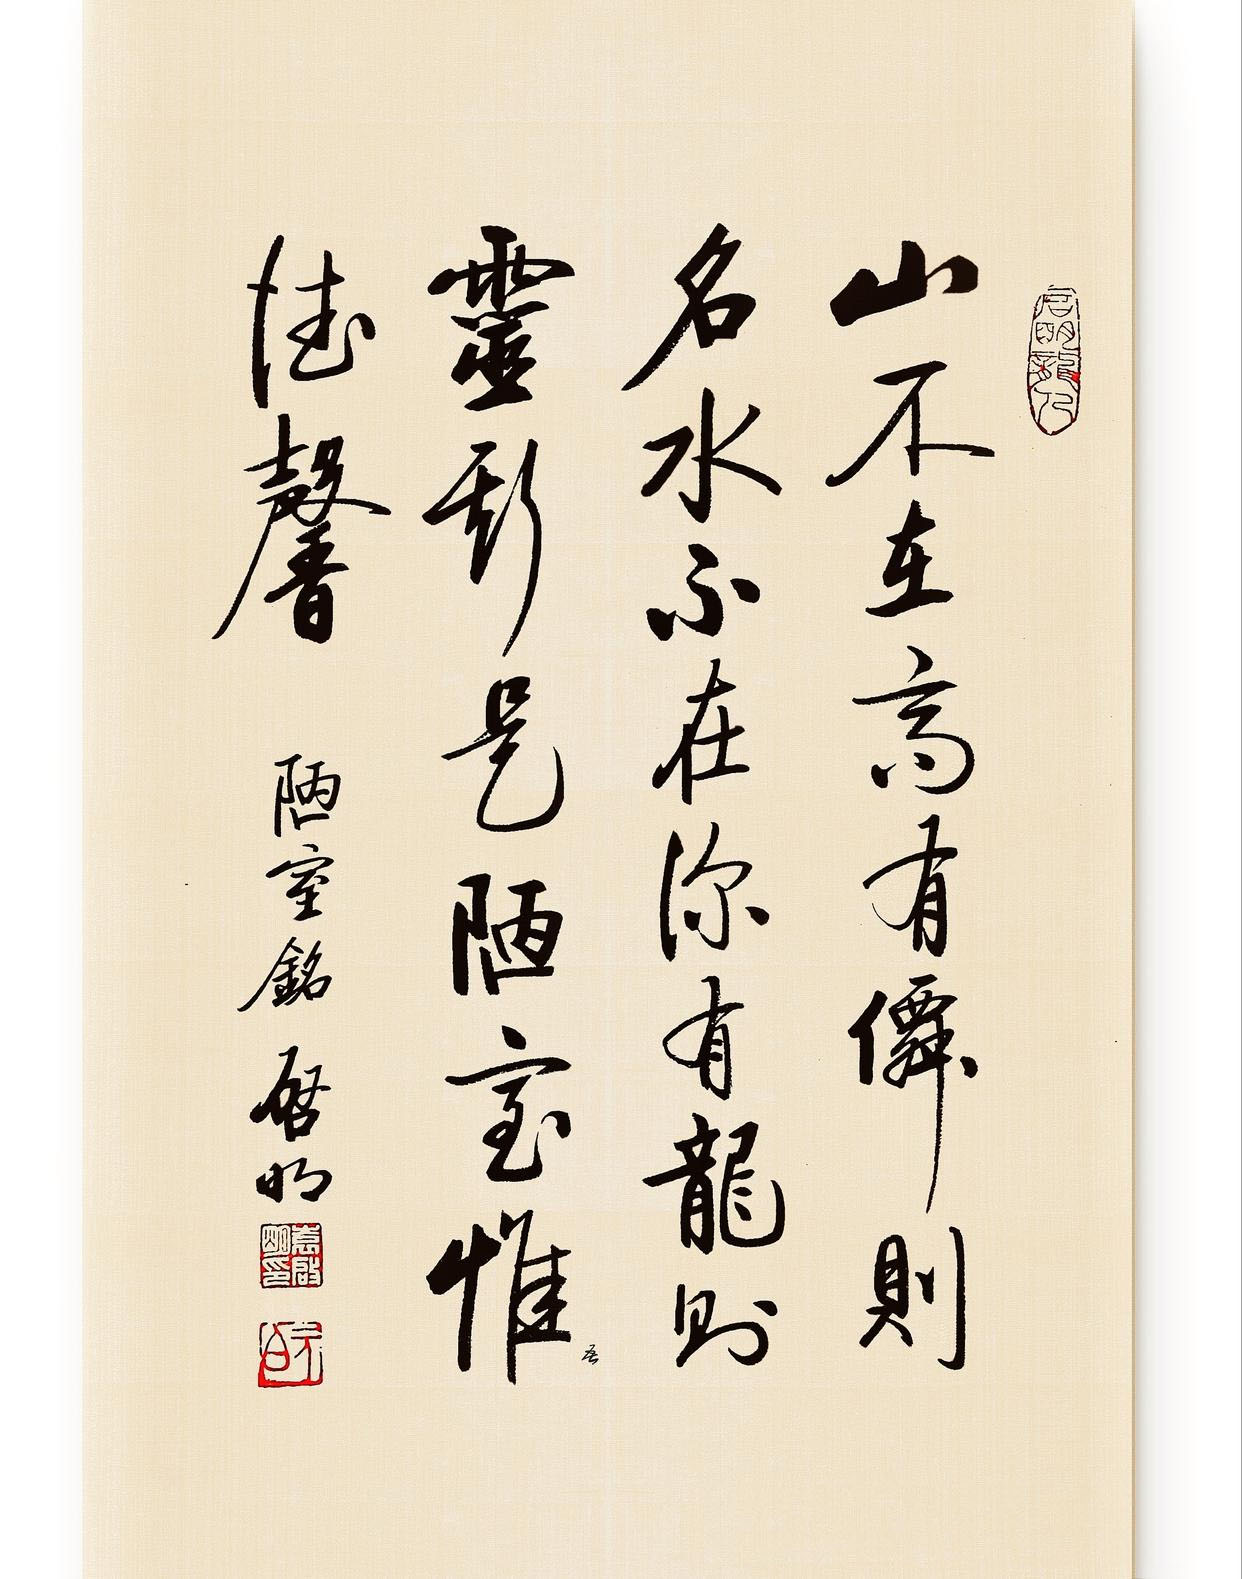 山不在高有僊則
名水不在深有龍則
靈斯是陋室惟
吾
德馨
陋室銘 啟明